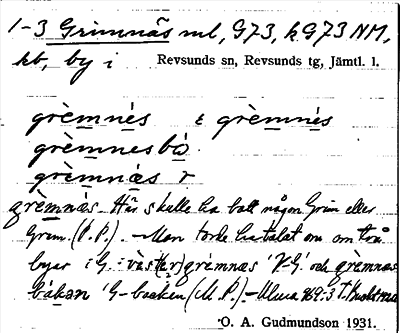 1-3 Grimnäs ml, G73, kG73 NM,
kb, by i Revsunds sn, Revsunds tg, Jämtl. l.
grèmnés t grèmnés
grèmnesbó
grèmnæs r
grèmnæs Här skulle ha bott någon Grim eller
Grem. (P.P.). — Man torde ha talat om om två
byar i G: væst(er)grèmnæs 'V-G' och grèmnæs-
bákan 'G-backen (M.P.) —
O. A. Gudmundson 1931.